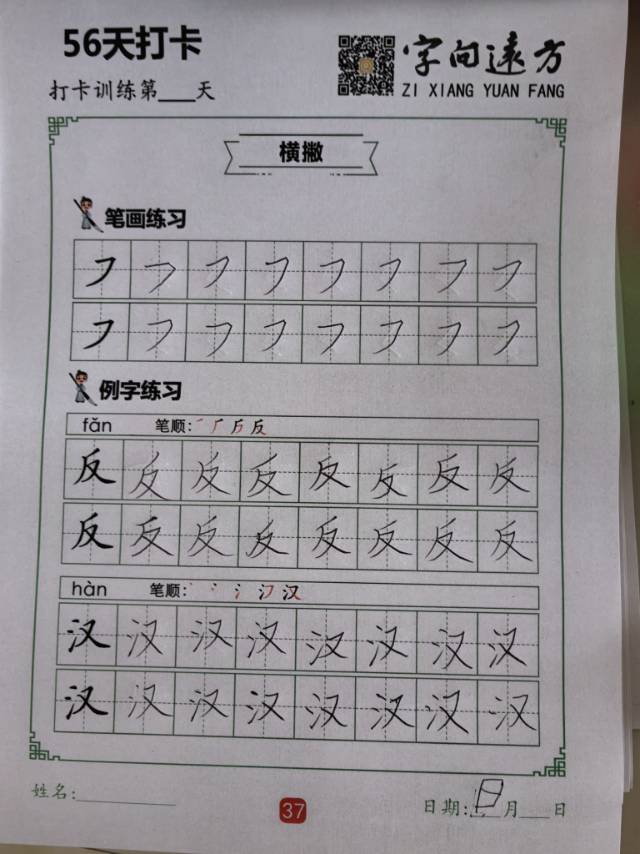 56天打卡
字向远方
打卡训练第___天
ZI XIANG YUAN FANG
横撇
笔画练习
㇇ ㇇ ㇇ ㇇ ㇇ ㇇ ㇇ ㇇
㇇ ㇇ ㇇ ㇇ ㇇ ㇇ ㇇ ㇇
例字练习
fǎn 笔顺: 反
反 反 反 反 反 反 反 反
反 反 反 反 反 反 反 反
hàn 笔顺: 汉
汉 汉 汉 汉 汉 汉 汉 汉
汉 汉 汉 汉 汉 汉 汉 汉
姓名:
37
日期: 月 日